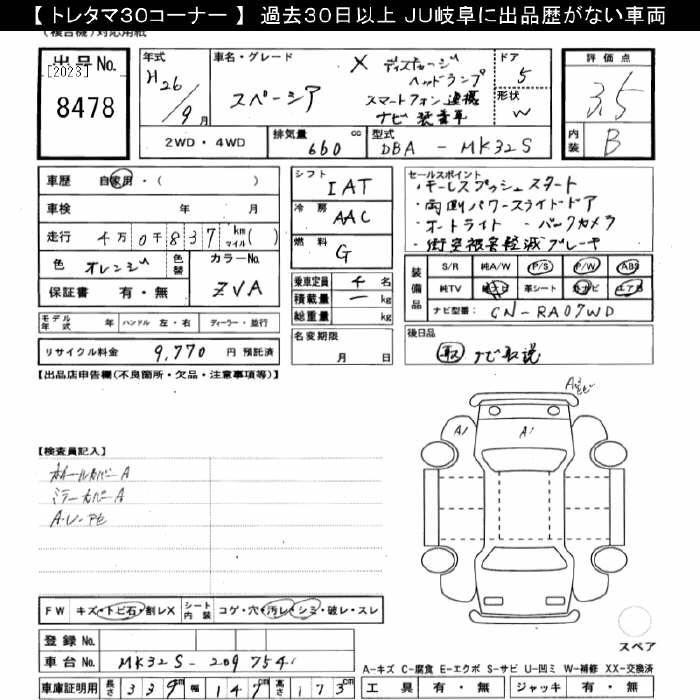 【 トレタマ30コーナー 】 過去30日以上 JU岐阜に出品歴がない車両
(複合機)対応用紙
出品No.
[2023]
8478
年式
H26/9月
車名・グレード
スペーシア
X ディスチャージ
ヘッドランプ
スマートフォン連携
ナビ装着車
ドア
5
形状
W
評価点
3.5
内装
B
2WD・4WD
排気量
660 cc
型式
DBA - MK32S
車歴 自家用・( )
車検 年 月
走行 4万0千837 km マイル( )
色 オレンジ 色替 カラーNo. ZVA
保証書 有・無
モデル年式 年 ハンドル 左・右 ディーラー・並行
リサイクル料金 9,770 円 預託済
シフト IAT
冷房 AAC
燃料 G
乗車定員 4 名
積載量 ー kg
総重量 kg
名変期限
月 日
セールスポイント
・キーレスプッシュスタート
・両側パワースライドドア
・オートライト ・バックカメラ
・衝突被害軽減ブレーキ
装備品
S/R 純A/W P/S P/W ABS
純TV 純ナビ 革シート エアB
ナビ型番: CN-RA07WD
後日品
取 ナビ取説
【出品店申告欄(不良箇所・欠品・注意事項等)】
【検査員記入】
ホイールカバーA
ミラーカバーA
A
A1
A1
FW キズ・トビ石・割レX シート内装 コゲ・穴・汚レ・シミ・破レ・スレ
登録No.
車台No. MK32S-209754
車庫証明用 長さ 339cm 幅 147cm 高さ 173cm
スペア
A-キズ C-腐食 E-エクボ S-サビ U-凹ミ W-補修 XX-交換済
工具 有・無 ジャッキ 有・無